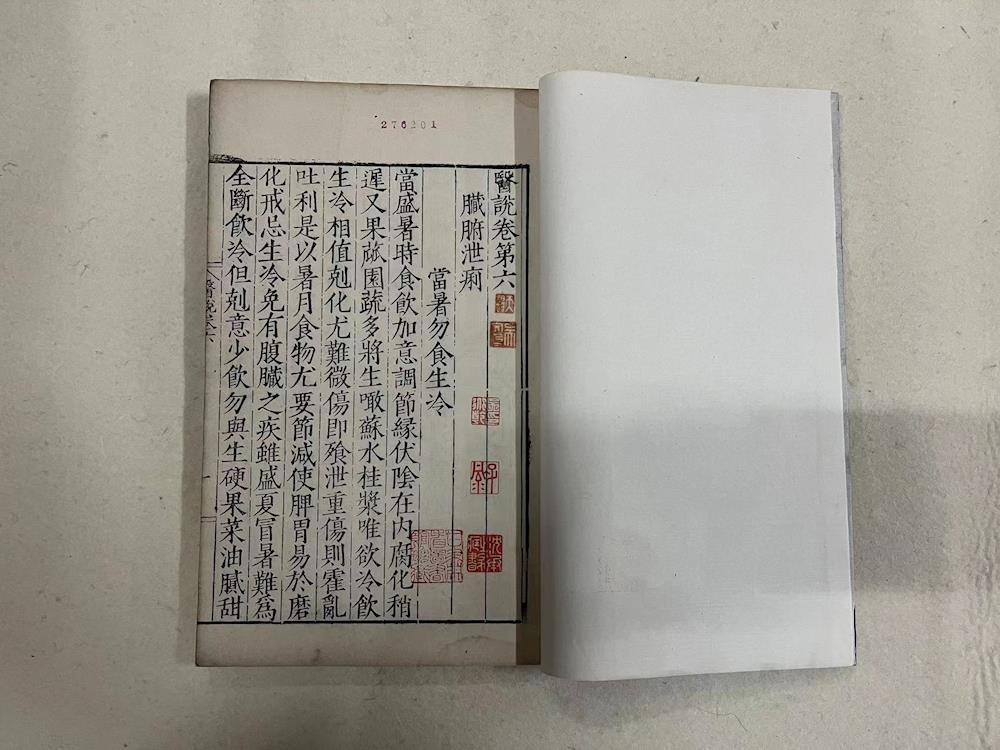 276201
醫說卷第六
臟腑泄痢
當暑勿食生冷
當盛暑時食飲加意調節緣伏陰在内腐化稍
遲又果蓏園蔬多將生噉蘇水桂漿唯欲冷飲
生冷相值剋化尤難微傷即飱泄重傷則霍亂
吐利是以暑月食物尤要節減使脾胃易於磨
化戒忌生冷免有腹臟之疾雖盛夏冒暑難爲
全斷飲冷但剋意少飲勿與生硬果菜油膩甜
醫說卷六